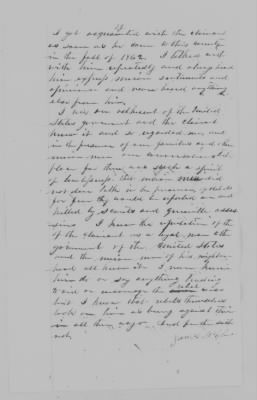 I got acquainted with the claimant
as soon as he came to this county
in the fall of 1862. I talked
with him repeatedly and always heard
him express union sentiments and
opinions and never heard anything
else from him.
I was an adherent of the United
States government and the claimant
knew it and so regarded me, and
in the presence of our families and other
union men our conversations took
place for there was such a spirit
of that union men did
not dare talk in the presence of rebels
for fear they would be reported and
killed by and Guerrilla
I know the reputation of the
of the claimant was loyal to the
government of the United States
and the union men of his neighbor-
hood all knew it. I never knew
him to do or say anything tending
to aid or encourage the rebel
but I know that rebels themselves
look on him as being against them
in all things and further saith
not.
James